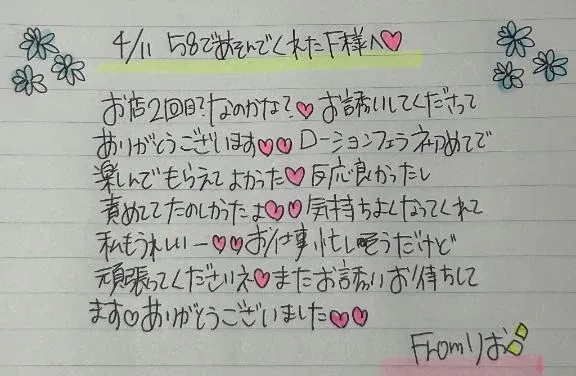 4/11 58であそんでくれたF様へ♡
お店2回目?なのかな?♡お誘いしてくださって
ありがとうございます♡♡ローションフェラネ初めてで
楽しんでもらえてよかった♡反応良かったし
責めててたのしかったよ♡♡気持ちよくなってくれて
私もうれしいー♡♡お仕事忙し そうだけど
頑張ってくださいネ♡またお誘いお待ちして
ます♡ありがとうございました♡♡
Fromりお